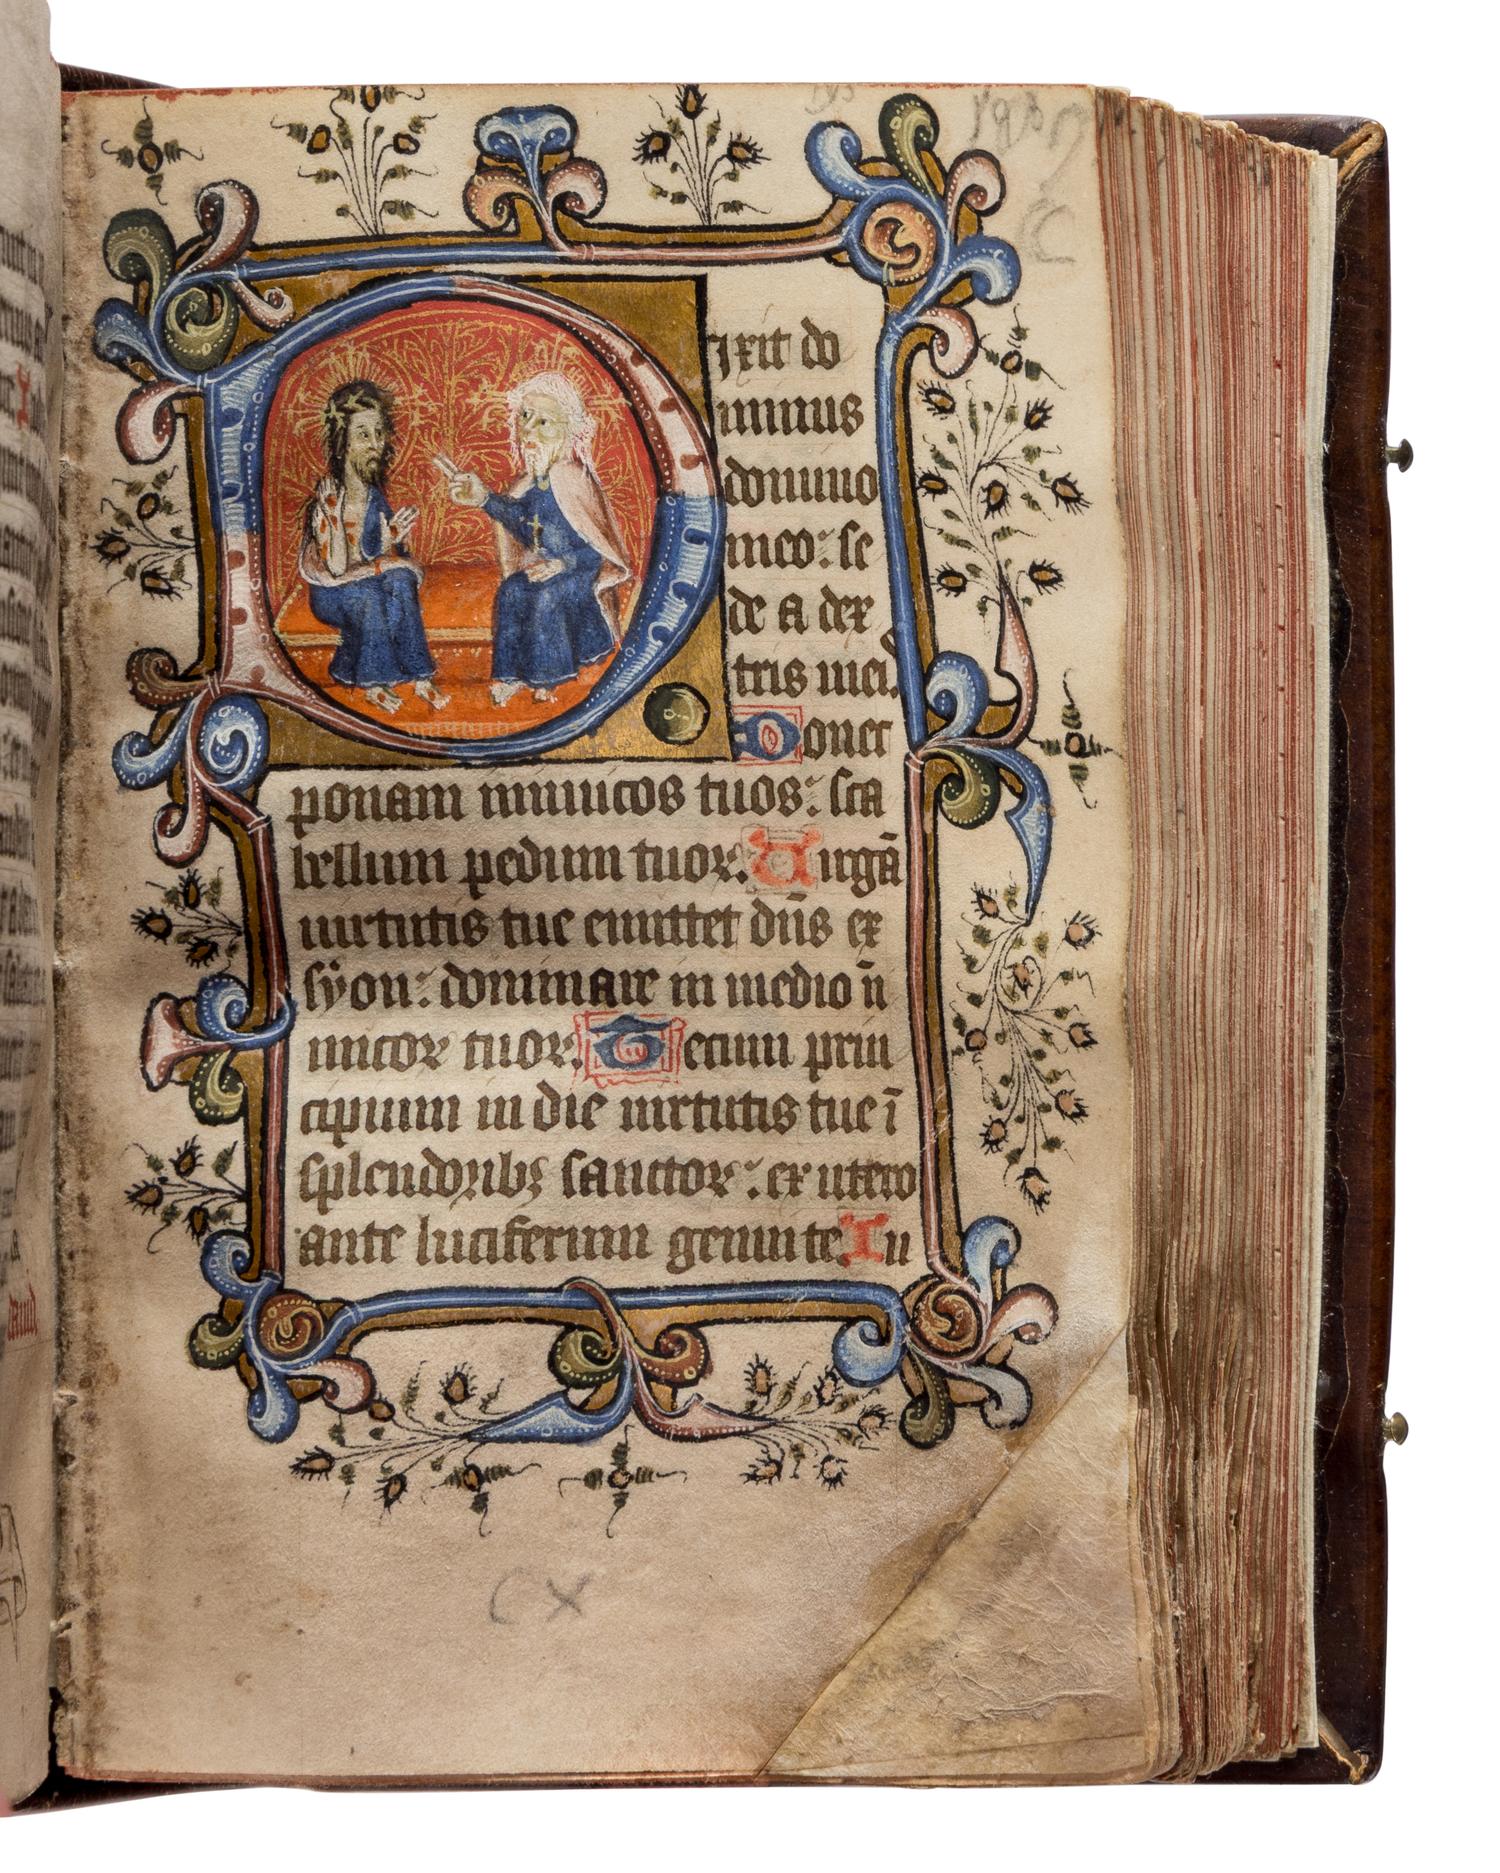 Dixit do
minus
domino
meo: se
de a dex
tris meis.
Donec
ponam inimicos tuos: sca
bellum pedum tuor. Uirgā
uirtutis tue emittet dn̄s ex
syon: dominare in medio īi
micor tuor. Tecum prin
cipium in die uirtutis tue ī
splendoribꝫ sanctor: ex utero
ante luciferum genui te. Iu
CX